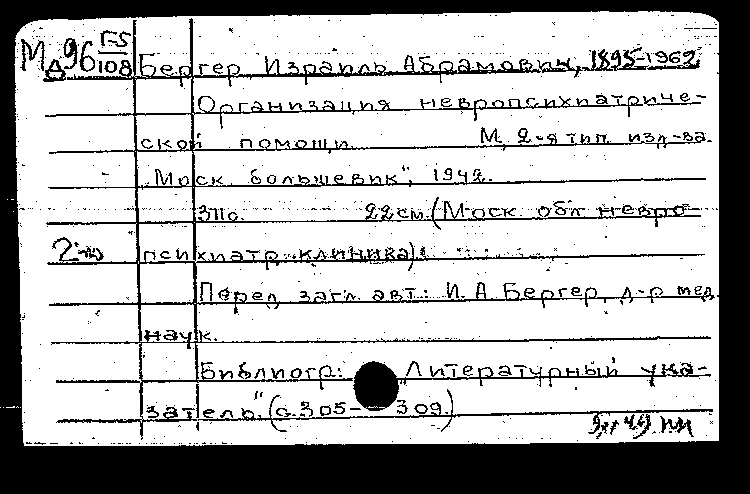 МД 96 Г-5
108 Бергер, Израиль Абрамович, 1895-1962
Организация невропсихиатриче-
ской помощи М, 2-я тип. изд-ва
„Моск. большевик", 1942.
311с. 22см. (Моск. обл. невро-
психиатр. клиника).
Перед загл. авт.: И. А. Бергер, д-р мед.
наук.
Библиогр.: „Литературный ука-
затель" (с. 305-309.)